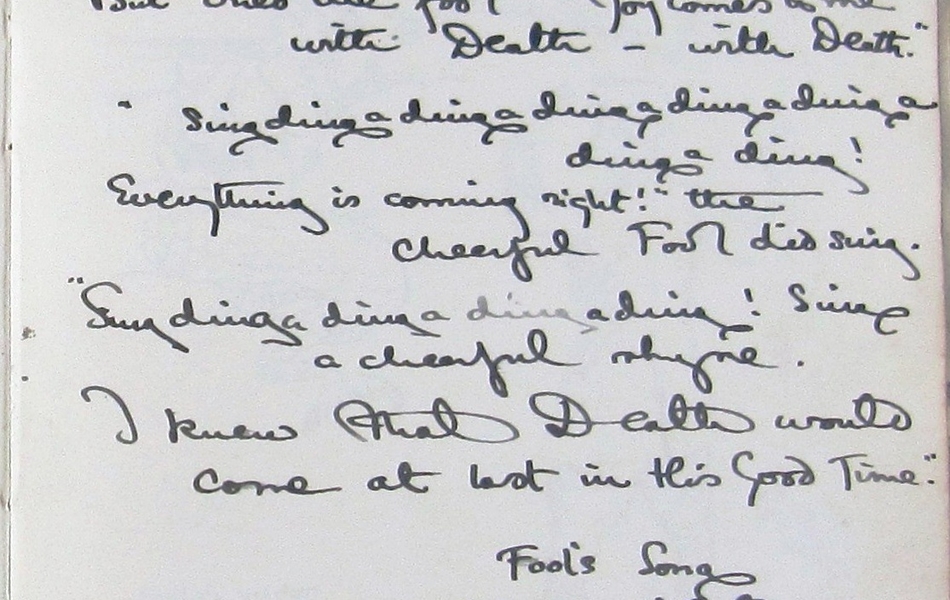 But cried the fool "Joy comes to me
with Death – with Death."
" Sing ding a ding a ding a ding a ding a
ding a ding!
Everything is coming right!" the
cheerful Fool did sing.
"Sing ding a ding a ding a ding! Sing
a cheerful rhyme.
I knew that Death would
come at last in this Good Time."
Fool's Song